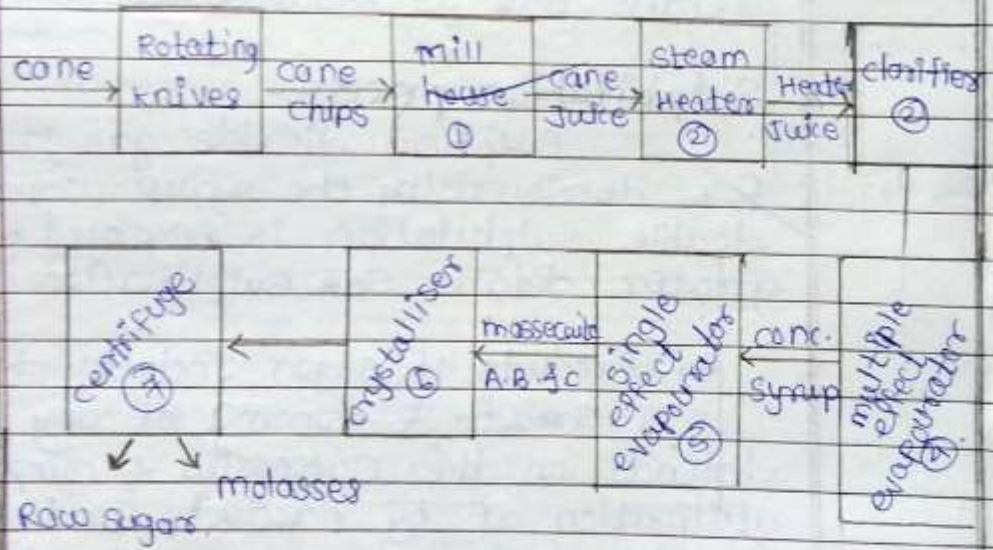 cane
Rotating
knives
cane
chips
mill
house
①
cane
Juice
steam
Heater
②
Heater
Juice
clarifier
②
multiple
effect
evapourator
④
conc.
syrup
single
effect
evapourator
⑤
massecuite
A.B.&C
crystalliser
⑥
centrifuge
⑦
Raw sugar.
molasses